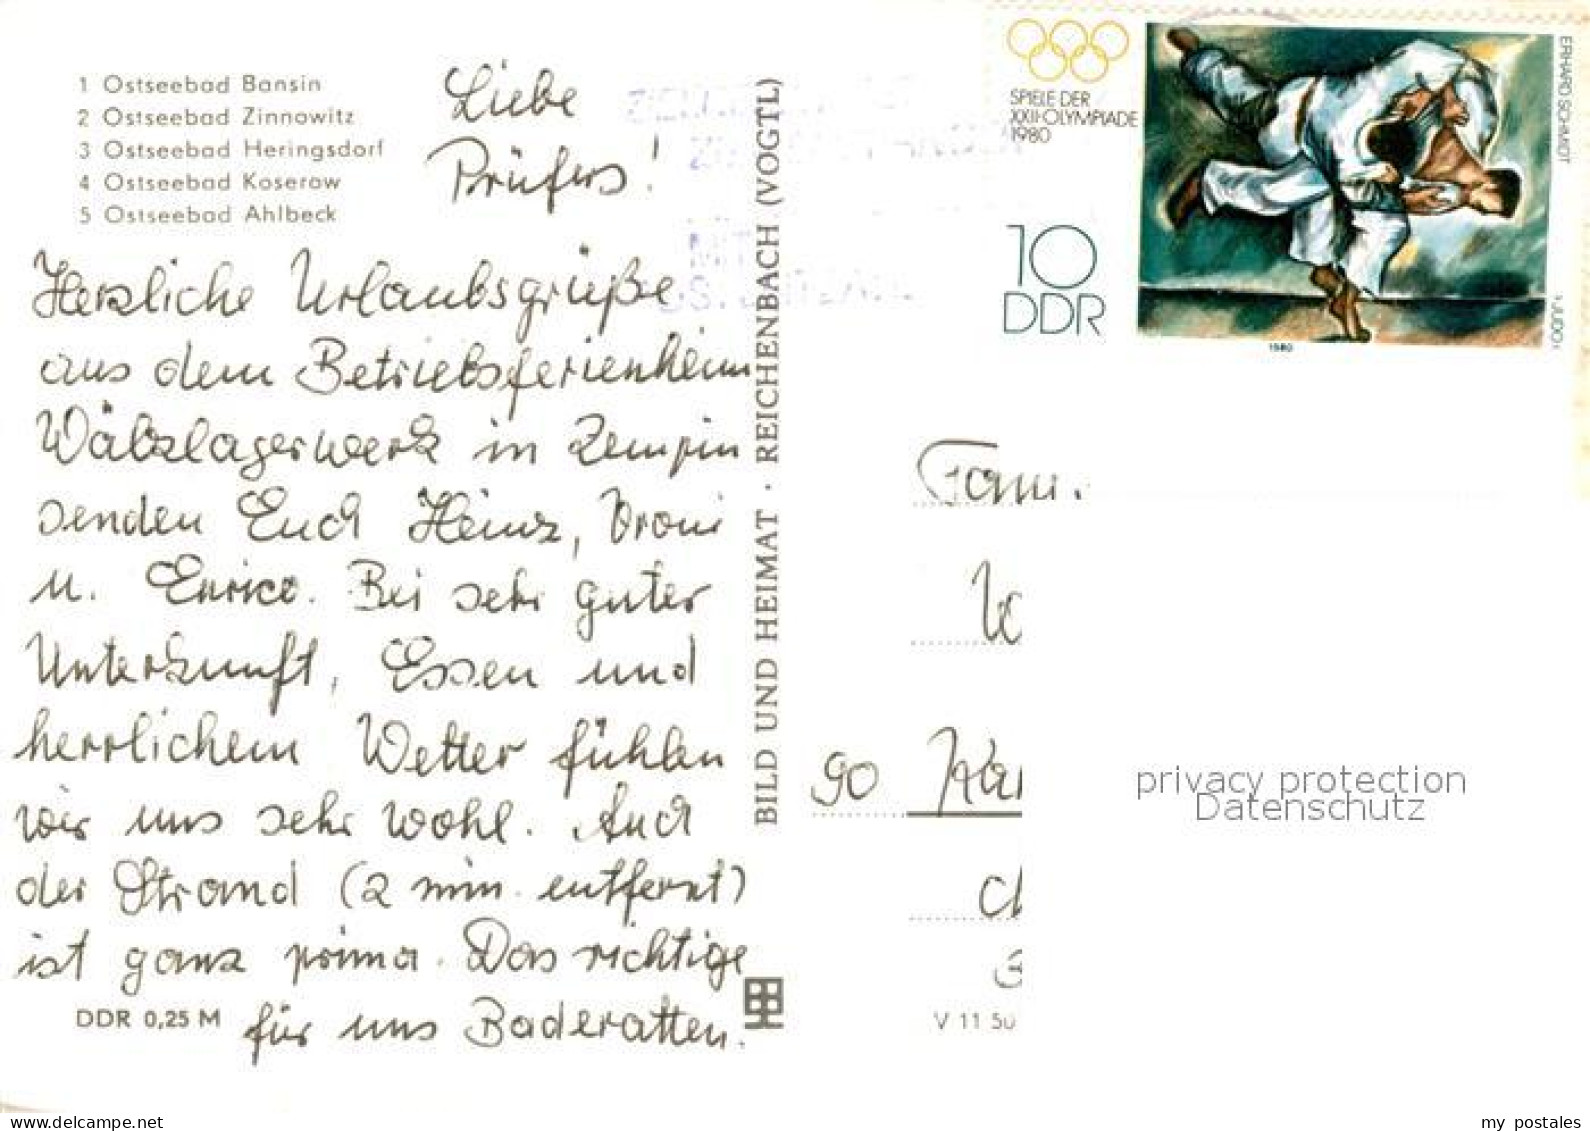 1 Ostseebad Bansin
2 Ostseebad Zinnowitz
3 Ostseebad Heringsdorf
4 Ostseebad Koserow
5 Ostseebad Ahlbeck
Liebe
Prüfers!
Herzliche Urlaubsgrüße
aus dem Betriebsferienheim
Wälzlagerwerk in Zempin
senden Euch Heinz, Vroni
u. Enrico. Bei sehr guter
Unterkunft, Essen und
herrlichem Wetter fühlen
wir uns sehr wohl. Auch
der Strand (2 min. entfernt)
ist ganz prima. Das richtige
für uns Baderatten.
DDR 0,25 M
BILD UND HEIMAT · REICHENBACH (VOGTL)
SPIELE DER
XXII·OLYMPIADE
1980
10
DDR
ERHARD SCHMIDT
›JUDO‹
1980
Fam.
90 Kar
V 11 50
privacy protection
Datenschutz
my_postales